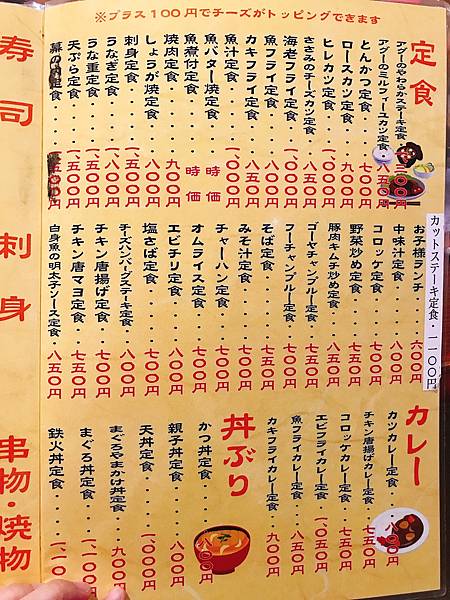 ※プラス１００円でチーズがトッピングできます
定食
アグーのやわらかステーキ定食
アグーのミルフィーユカツ定食
とんかつ定食・・・七〇〇円
ロースカツ定食・・・九〇〇円
ヒレカツ定食・・・一、〇〇〇円
ささみのチーズカツ定食・八五〇円
海老フライ定食・・一、〇〇〇円
魚フライ定食・・・八五〇円
カキフライ定食・・・八五〇円
魚汁定食・・・一、〇〇〇円
魚バター焼定食・・・時価
魚煮付定食・・・時価
焼肉定食・・・九〇〇円
しょうが焼定食・・・八五〇円
刺身定食・・・一、五〇〇円
うなぎ定食
うな重定食
天ぷら定食
定食
カットステーキ定食・一一〇〇円
お子様ランチ・・・六〇〇円
中味汁定食・・・八〇〇円
コロッケ定食・・・七〇〇円
野菜炒め定食・・・七五〇円
豚肉キムチ炒め定食・・八五〇円
ゴーヤチャンプルー定食・七五〇円
フーチャンプルー定食・・七五〇円
そば定食・・・六五〇円
みそ汁定食・・・七〇〇円
チャーハン定食・・・七〇〇円
オムライス定食・・・七〇〇円
エビチリ定食・・・八〇〇円
塩さば定食・・・七〇〇円
チーズハンバーグステーキ定食・八〇〇円
チキン唐揚げ定食・・七〇〇円
チキン唐マヨ定食・・七五〇円
白身魚の明太子ソース定食・八五〇円
カレー
カツカレー定食・・・八〇〇円
チキン唐揚げカレー定食・・七五〇円
コロッケカレー定食・・七五〇円
エビフライカレー定食・・一、〇五〇円
魚フライカレー定食・・九〇〇円
カキフライカレー定食・・九〇〇円
丼ぶり
かつ丼定食・・・八〇〇円
親子丼定食・・・七〇〇円
天丼定食・・・一、〇〇〇円
まぐろやまかけ丼定食・・九〇〇円
まぐろ丼定食・・・一、一〇〇円
鉄火丼定食
寿司
刺身
串物・焼物